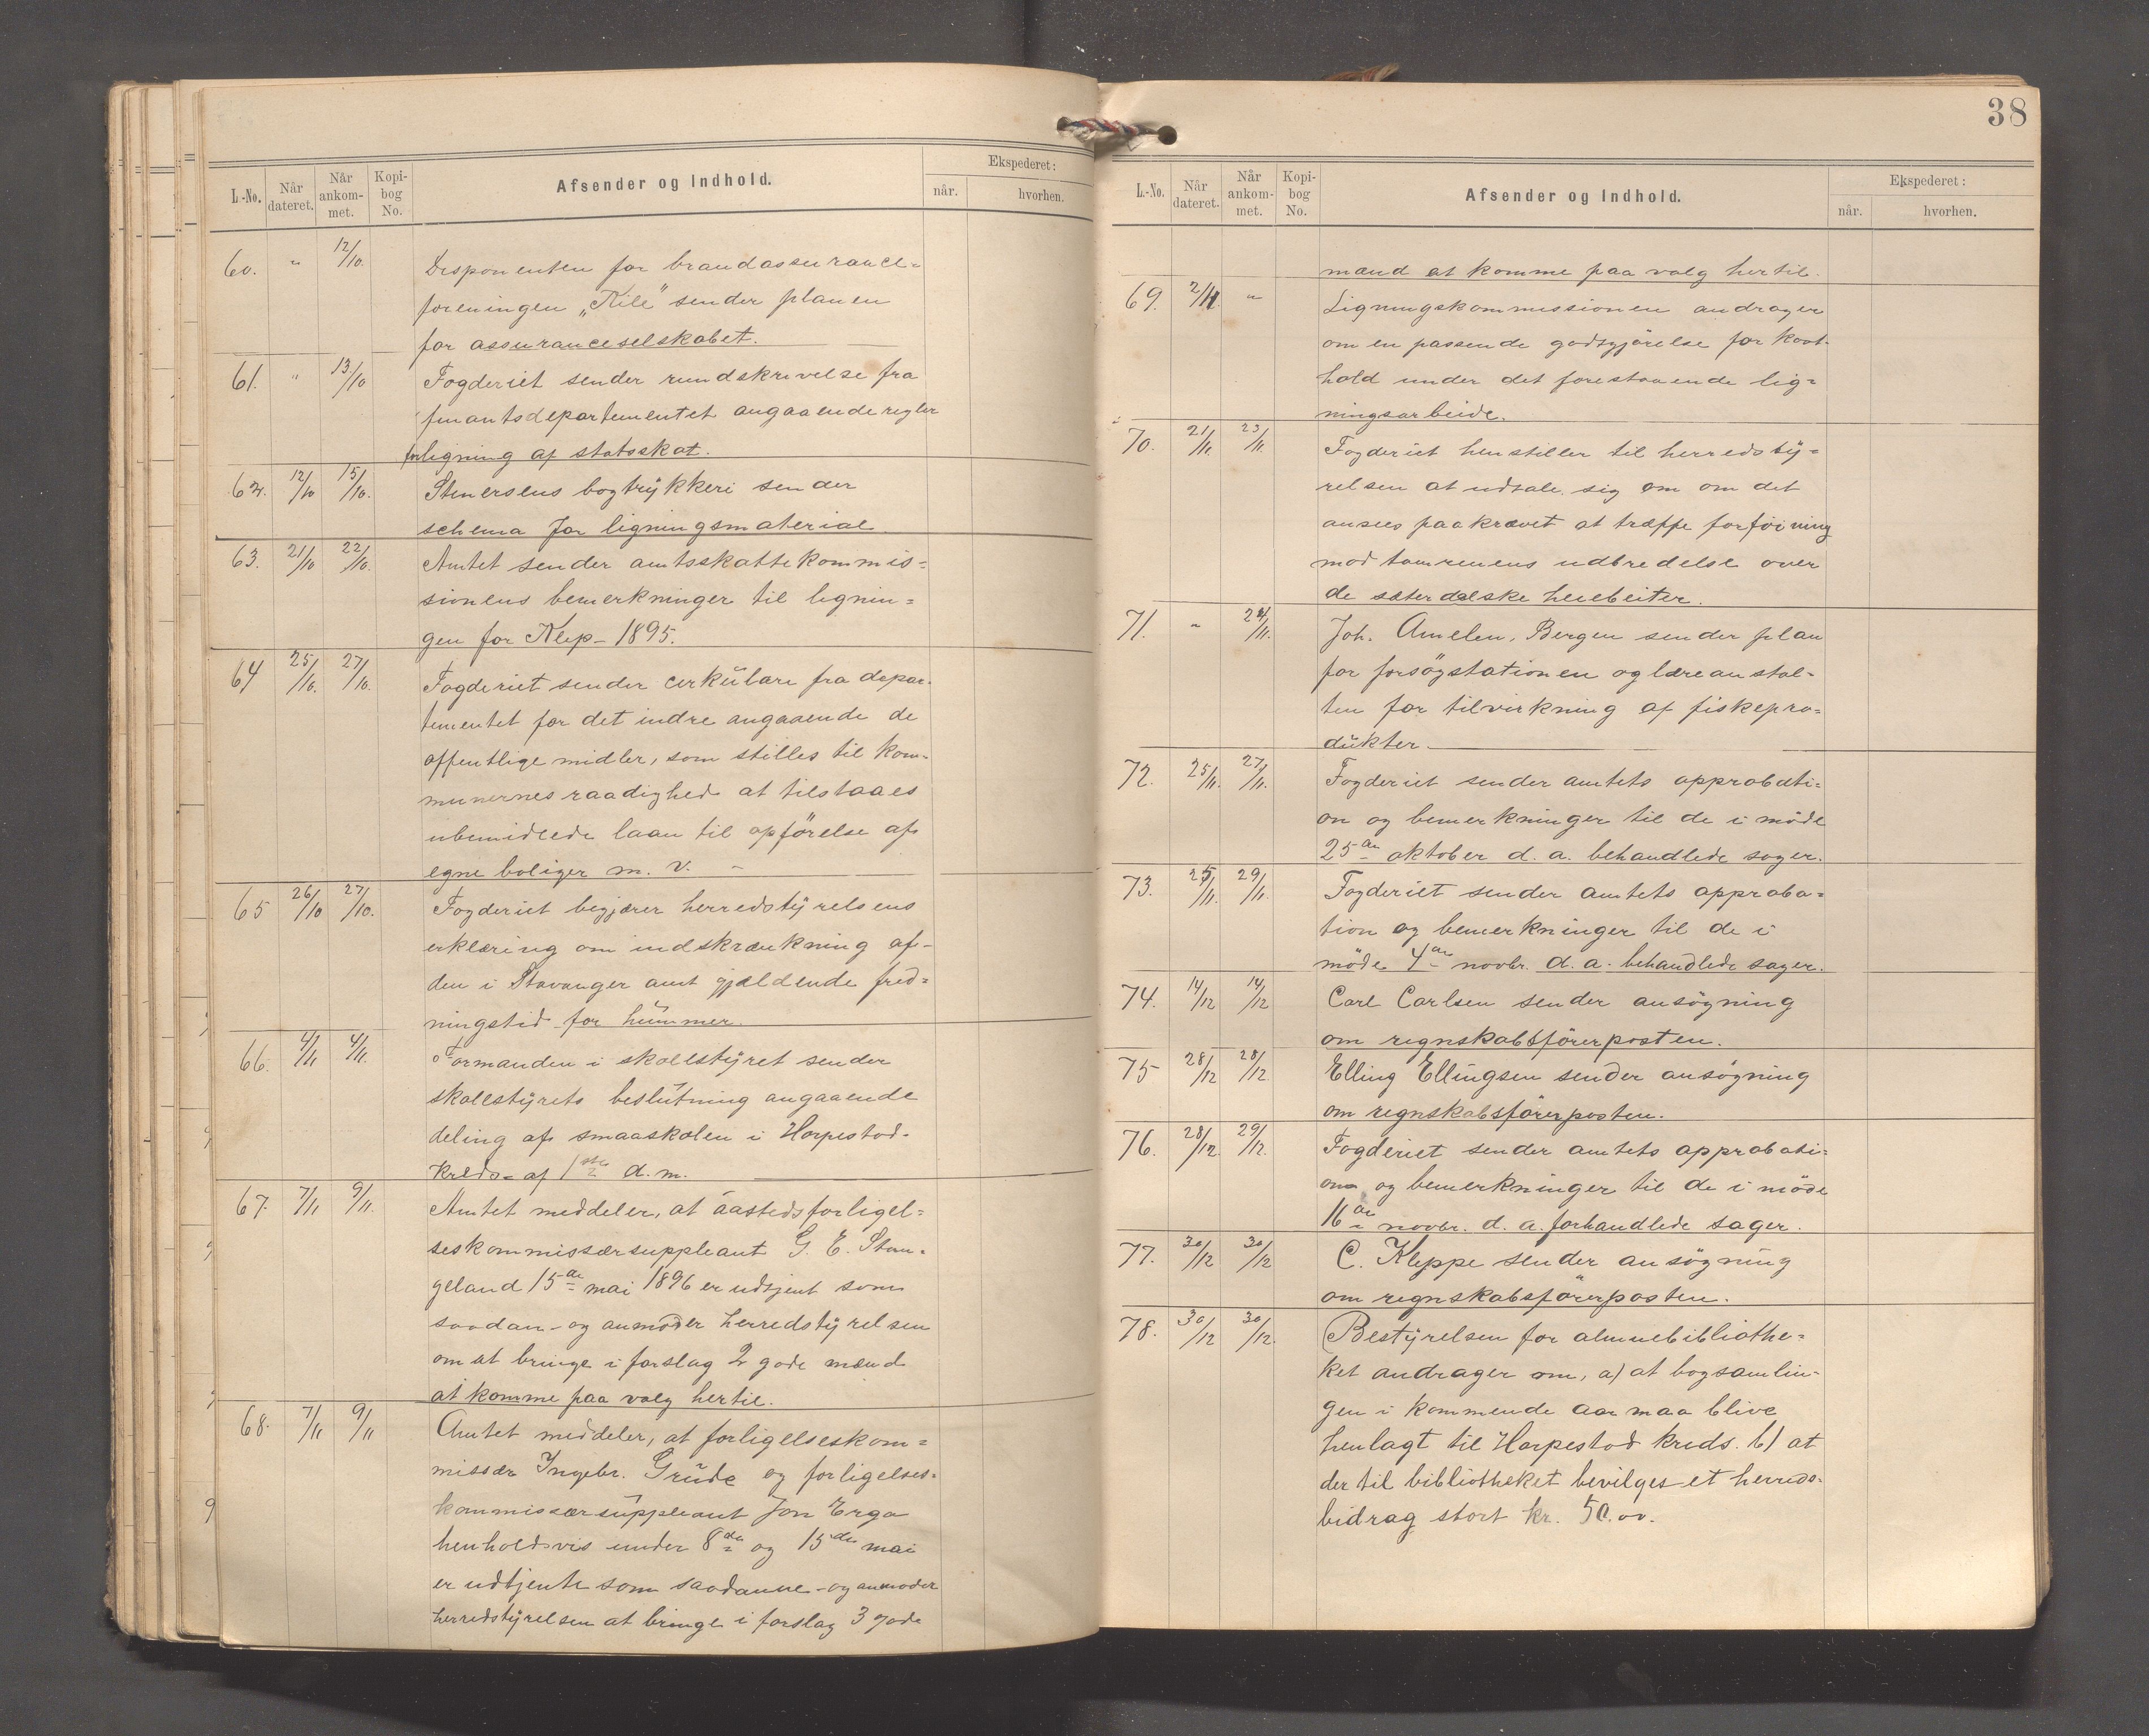 L.-No. Når dateret. Når ankom-met. Kopi-bog No. Afsender og Indhold. Ekspederet: når. hvorhen.
60. " 12/10. Disponenten for brandassurance-
foreningen „Kile" sender planen
for assuranceselskabet.
61. " 13/10 Fogderiet sender rundskrivelse fra
finantsdepartementet angaaende regler
forligning af statsskat.
62. 12/10 15/10. Stenersens bogtrykkeri sender
schema for ligningsmateriál
63. 21/10 22/10. Amtet sender amtsskattekommis-
sionens bemerkninger til lignin-
gen for Klep - 1895.
64 25/10. 27/10. Fogderiet sender cirkulære fra depar-
tementet for det indre angaaende de
offentlige midler, som stilles til kom-
munernes raadighed at tilstaaes
ubemidlede laan til opförelse af
egne boliger m. v. -
65 26/10 27/10. Fogderiet begjærer herredstyrelsens
erklæring om indskrænkning af-
den i Stavanger amt gjældende fred-
ningstid for hummer.
66. 4/11 4/11. Formanden i skolestyret sender
skolestyrets beslutning angaaende
deling af smaaskolen i Horpestad-
kreds - af 1ste d. m.
67. 7/11 9/11. Amtet meddeler, at aastedsforligel-
seskommissærsuppleant G. E. Stan-
geland 15de mai 1896 er udtjent som
saadan - og anmoder herredstyrelsen
om at bringe i forslag 2 gode mænd
at komme paa valg hertil.
68. 7/11 9/11 Amtet meddeler, at forligelseskom-
missær Ingebr. Grude og forligelses-
kommissærsuppleant Jon Erga
henholdsvis under 8de og 15de mai
er udtjente som saadanne - og anmoder
herredstyrelsen at bringe i forslag 3 gode
38
L.-No. Når dateret. Når ankom-met. Kopi-bog No. Afsender og Indhold. Ekspederet: når. hvorhen.
mænd at komme paa valg hertil.
69. 2/11. " Ligningskommissionen andrager
om en passende godtgjörelse for kost-
hold under det forestaaende lig-
ningsarbeide.
70. 21/11. 23/11. Fogderiet henstiller til herredsty-
relsen at udtale sig om om det
ansees paakrævet at træffe forföining
mod tamrenens udbredelse over
de sæterdalske heiebeiter.
71. " 24/11. Joh. Amelen, Bergen sender plan
for forsögstationen og læreanstal-
ten for tilvirkning af fiskepro-
dukter.
72. 25/11. 27/11. Fogderiet sender amtets approbati-
on og bemerkninger til de i möde
25de oktober d. a. behandlede sager.
73. 25/11. 29/11. Fogderiet sender amtets approba-
tion og bemerkninger til de i
möde 4de novbr. d. a. behandlede sager.
74. 14/12 14/12 Carl Carlsen sender ansögning
om regnskabsförerposten.
75 28/12 28/12. Elling Ellingsen sender ansögning
om regnskabsförerposten.
76. 28/12. 29/12. Fogderiet sender amtets approbati-
on og bemerkninger til de i möde
16de novbr. d. a. forhandlede sager.
77. 30/12 30/12 C. Kleppe sender ansögning
om regnskabsförerposten.
78. 30/12 30/12. Bestyrelsen for almuebibliothe-
ket andrager om, a) at bogsamlin-
gen i kommende aar maa blive
henlagt til Horpestad kreds. b) at
der til bibliotheket bevilges et herreds-
bidrag stort kr. 50.00.